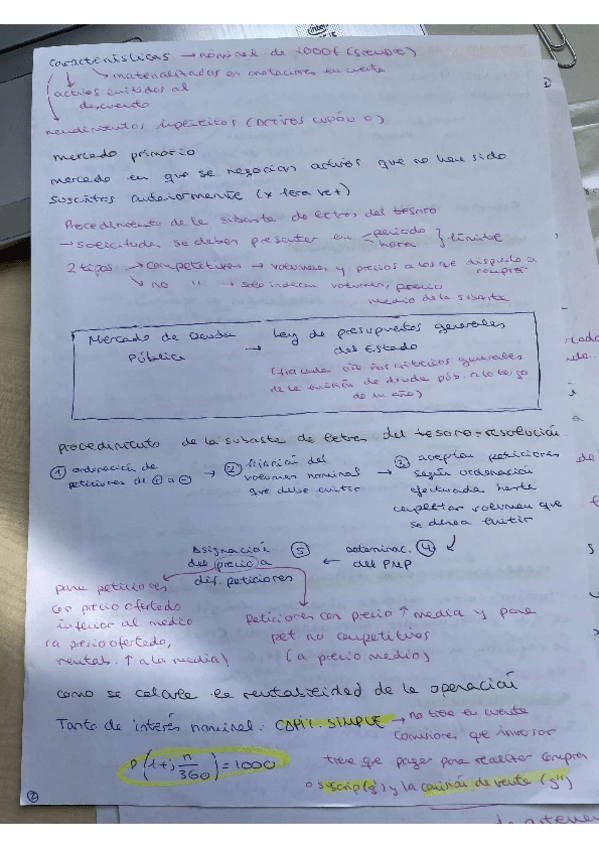 características → nominal de 1000€
materializados en anotaciones en cuenta
activos emitidos al
descuento
rendimientos implícitos (activos cupón 0)
mercado primario
mercado en que se negocian activos que no han sido
suscritos anteriormente (x 1era vez)
Procedimiento de la subasta de letras del tesoro
→ solicitudes se deben presentar en periodo
hora } límite
2 tipos → competitivas → volumen y precios a los que dispuesto a
comprar
↘ no " → solo indican volumen, precio
medio de la subasta
Mercado de Deuda
Pública
→ Ley de presupuestos generales
del Estado
criterios generales
de la emisión de deuda púb. a lo largo
de un año)
procedimiento de la subasta de letras del tesoro = resolución
① ordenación de
peticiones de ⊕ a ⊖
→ ② fijación del
volumen nominal
que debe emitir
→ ③ aceptan peticiones
según ordenación
efectuada hasta
completar volumen que
se desea emitir
④ determinac.
del PMP
← ⑤ Asignación
del precio a
dif. peticiones
para peticiones
con precio ofertado
inferior al medio
(a precio ofertado,
rentab. ↑ a la media)
Peticiones con precio ↑ media y para
pet no competitivas
(a precio medio)
como se calcula la rentabilidad de la operación
Tanto de interés nominal: CAPIT. SIMPLE → no tiene en cuenta
comisiones que inversor
P(1+i n/360) = 1000
tiene que pagar para realizar compra
o suscrip (g') y la comisión de venta (g'')
②
intel